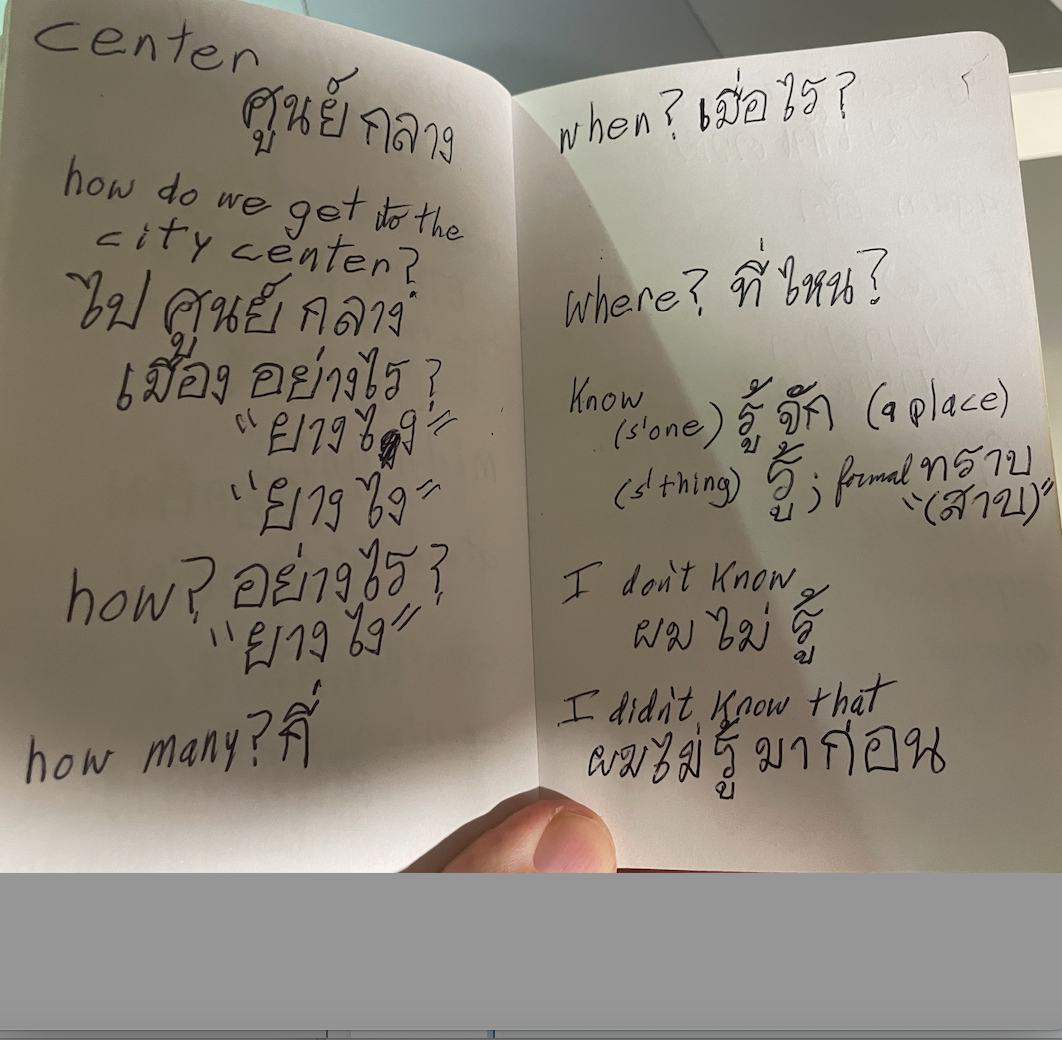 center
ศูนย์ กลาง
how do we get to the
city center?
ไป ศูนย์ กลาง
เมือง อย่างไร?
"ยางไง"
"ยางไง"
how? อย่างไร?
"ยางไง"
how many? กี่
when? เมื่อไร?
where? ที่ไหน?
Know
(s'one) รู้จัก (a place)
(s'thing) รู้; formal ทราบ
"(สาบ)"
I don't Know
ผม ไม่ รู้
I didn't Know that
ผมไม่รู้ มาก่อน